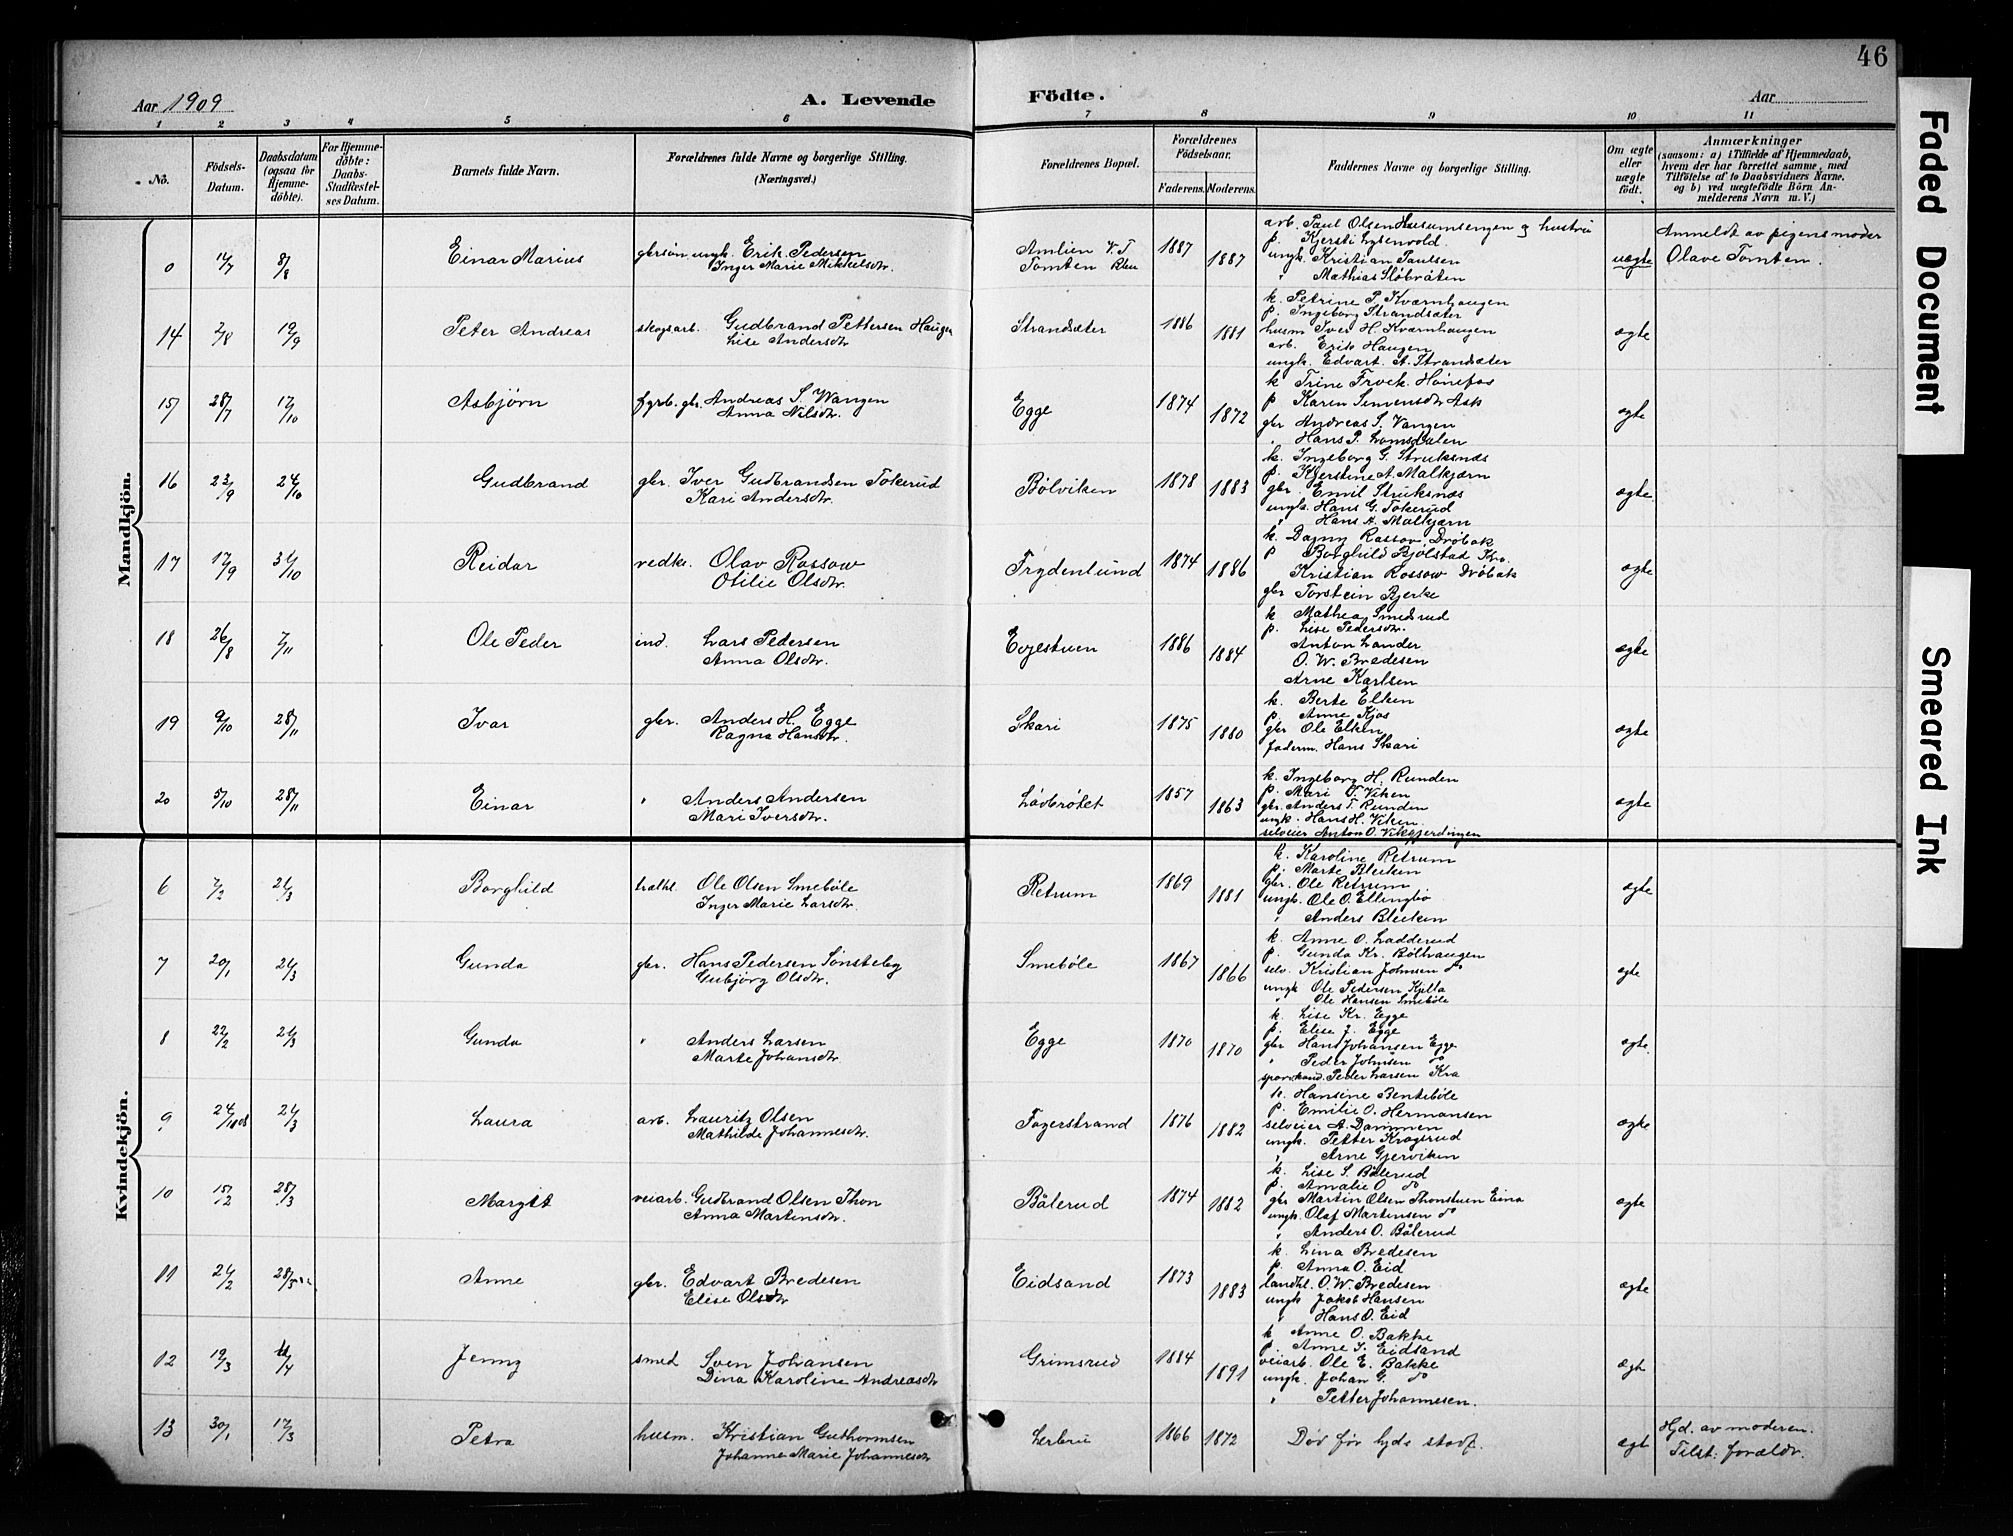 46
Aar 1909 A. Levende Födte. Aar
1 2 3 4 5 6 7 8 9 10 11
No. Födsels-Datum. Daabsdatum (ogsaa for Hjemmedöbte). For Hjemmedöbte: Daabs-Stadfæstelses Datum. Barnets fulde Navn. Forældrenes fulde Navne og borgerlige Stilling. (Næringsvei.) Forældrenes Bopæl. Forældrenes Födselsaar. Faderens. Moderens. Faddernes Navne og borgerlige Stilling. Om ægte eller uægte födt. Anmærkninger (saasom: a) i Tilfælde af Hjemmedaab, hvem der har forrettet samme, med Tilföielse af to Daabsvidners Navne, og b) ved uægtefödte Börn Anmelderens Navn m. V.)
Mandkjön.
0 14/7 8/8 Einar Marius gbrsøn ungk. Erik Pedersen
Inger Marie Mikkelsdtr. Amlien V. T.
Tomten 1887 1887 arb. Paul Olsen Husumsengen og hustru
p. Kjersti Lybenvold.
ungk. Kristian Paulsen
" Mathias Sløbråten
uægte Anmeldt av pigens moder
Olave Tomten.
14 2/8 19/9 Peter Andreas skogsarb. Gudbrand Pettersen Haugen
Lise Andersdtr Strandsæter 1886 1881 k. Petrine P. Kværnhaugen
p. Ingeborg Strandsæter
husm Iver H. Kværnhaugen
arb. Erik Haugen
ungk. Edvart A. Strandsæter
ægte
15 28/7 17/10 Asbjørn fgrb. gbr. Andreas S. Wangen
Anna Nilsdtr. Egge 1874 1872 k Trine Frock. Hønefos
p Karen Simensdtr Ask
gbr Andreas S. Vangen
" Hans P. Lomsdalen
ægte
16 22/9 24/10 Gudbrand gbr. Iver Gudbrandsen Tokerud
Kari Andersdtr. Bølviken 1878 1883 k. Ingeborg G. Struksnæs
p. Kjerstine A. Malkjærn
gbr. Emil Struksnæs
ungk. Hans G. Tokerud
" Hans A. Malkjærn
ægte
17 17/9 31/10 Reidar vedkr. Olav Rossow
Otilie Olsdtr. Frydenlund 1874 1886 k. Dagny Rossow Drøbak
p Borghild Bjølstad Kra.
Kristian Rossow Drøbak
gbr Torstein Bjerke
ægte
18 26/8 7/11 Ole Peder ind. Lars Pedersen
Anna Olsdtr. Evjestuen 1886 1884 k Mathea Smedsrud
p. Lise Pedersdtr.
Anton Lander
O. W. Bredesen
Arne Karlsen
ægte
19 9/10 28/11 Ivar gbr. Anders H. Egge
Ragna Hansdtr. Skari 1875 1880 k. Berte Elken
p. Anne Kjos
gbr Ole Elken
faderm. Hans Skari
ægte
20 5/10 28/11 Einar " Anders Andersen
Mari Iversdtr. Lådbrøtet 1857 1863 k. Ingeborg H. Runden
p. Mari T. Viken
gbr. Anders T. Runden
ungk. Hans H. Viken
selveier Anton O. Vikgjerdingen
ægte
Kvindekjön.
6 7/2 21/3 Borghild Ole Olsen Smebøle
Inger Marie Larsdtr. Retrum 1869 1881 k. Karoline Retrum
p. Marte Bleiken
gbr. Ole Retrum
ungk. Ole O. Ellingbø
" Anders Bleiken
ægte
7 20/1 21/3 Gunda gbr. Hans Pedersen Sønsteby
Gubjørg Olsdtr. Smebøle 1867 1866 k. Anne O. Ladderud
p. Gunda Kr. Bølhaugen
selv. Kristian Johnsen do
ungk Ole Pedersen Kjølla
" Ole Hansen Smebøle
ægte
8 22/2 21/3 Gunda " Anders Larsen
Marte Johansdtr Egge 1870 1870 k. Lise Kr. Egge
p. Elise J. Egge
gbr Hans Johansen Egge
" Peder Johnsen do
sporvkond. Peder Larsen Kra
ægte.
9 24/10 08 21/3 Laura arb. Lauritz Olsen
Mathilde Johannesdtr. Fagerstrand 1876 1882 k. Hansine Bentebøle
p. Emilie O. Hermansen
selveier A. Dammen
ungk. Petter Krogsrud
" Arne Gjerviken
ægte
10 15/2 28/3 Margit veiarb. Gudbrand Olsen Thon
Anna Martinsdtr. Bålerud 1874 1882 k. Lise S. Bålerud
p. Amalie O. do
gbr Martin Olsen Thonstuen Eina
ungk. Olaf Martinsen do
" Anders O. Bålerud
ægte
11 21/2 28/3 Anne gbr. Edvart Bredesen
Elise Olsdtr Eidsand 1873 1883 k. Lina Bredesen
p. Anna O. Eid
landhl. O. W. Bredesen
ungk Jakob Hansen
" Hans O. Eid
ægte
12 19/3 /4 Jenny smed Sven Johansen
Dina Karoline Andreasdtr Grimsrud 1884 1891 k Anne O. Bakke
p. Anne I. Eidsand
veiarb. Ole E. Bakke
ungk. Johan G. do
" Petter Johannesen.
ægt
13 30/1 17/3 Petra husm. Kristian Guthormsen
Johanne Marie Johannesdtr Lerbru 1866 1872 Død før hjds stadf. ægt Hjd. av moderen.
Tilst: forældr.
Faded Document
Smeared Ink